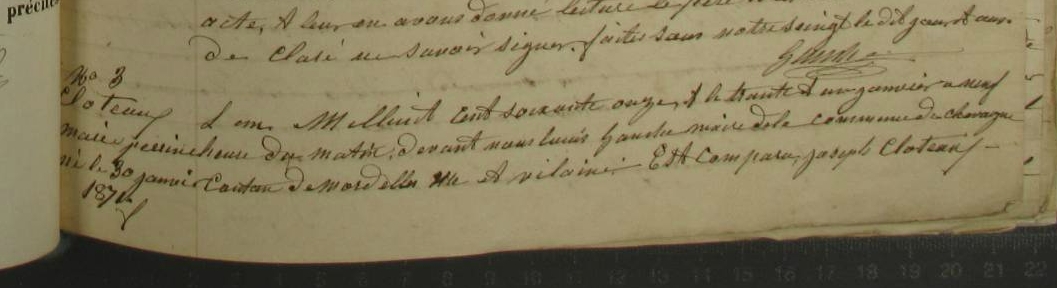 précité
acte, A leur en avons donné lecture le père
de Claré ne savoir signer. faites sous notre seingt le dit jour A ans.
Gaudu
No 3
Cloteau
marie perrine
né le 30 janvier
1871
L an Mil huit Cent soixante onze, A le trante A un janvier a neuf
heure du matin. devant nous louis Gaudu maire de la commune de chavagne
Canton de Mordelles ille A vilaine EstA Comparu, Joseph Cloteau
10 11 12 13 14 15 16 17 18 19 20 21 22